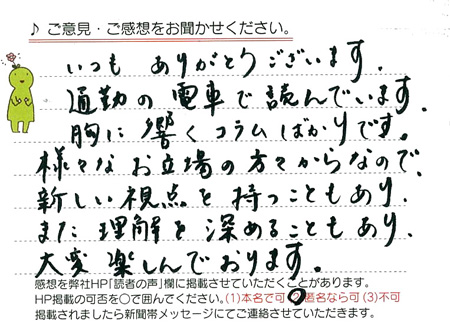 ♪ ご意見・ご感想をお聞かせください。
いつも ありがとうございます。
通勤の電車で読んでいます。
胸に響くコラムばかりです。
様々なお立場の方々からなので、
新しい視点を持つこともあり、
また理解を深めることもあり、
大変楽しんでおります。
感想を弊社HP「読者の声」欄に掲載させていただくことがあります。
HP掲載の可否を○で囲んでください。(1)本名で可 匿名なら可 (3)不可
掲載されましたら新聞帯メッセージにてご連絡させていただきます。